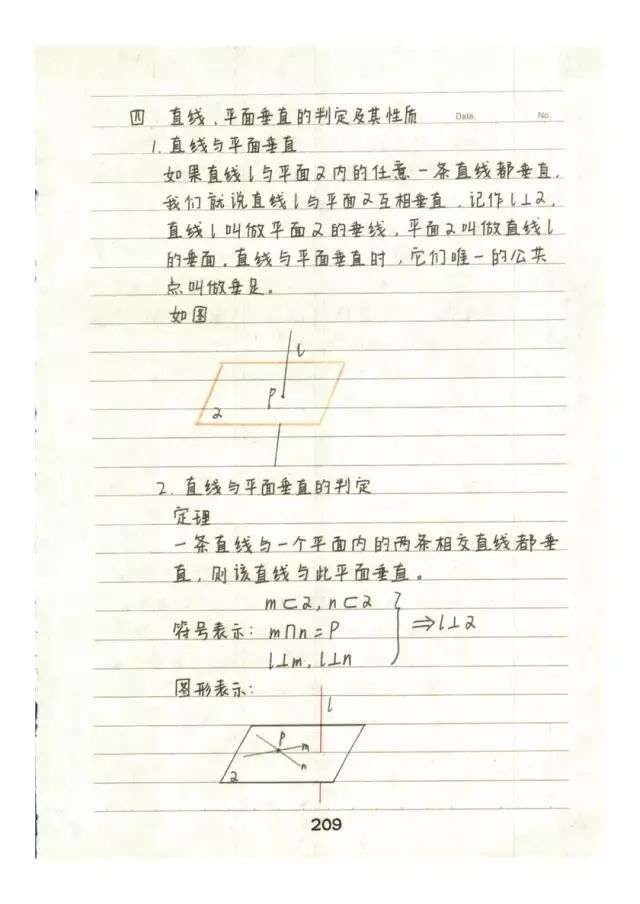 四 直线、平面垂直的判定及其性质 Date. No.
1.直线与平面垂直
如果直线l与平面α内的任意一条直线都垂直,
我们就说直线l与平面α互相垂直,记作l⊥α,
直线l叫做平面α的垂线,平面α叫做直线l
的垂面.直线与平面垂直时,它们唯一的公共
点叫做垂足。
如图
l
P
α
2.直线与平面垂直的判定
定理
一条直线与一个平面内的两条相交直线都垂
直,则该直线与此平面垂直。
m⊂α,n⊂α
符号表示:m∩n=P } ⇒l⊥α
l⊥m,l⊥n
图形表示:
l
P
m
n
α
209